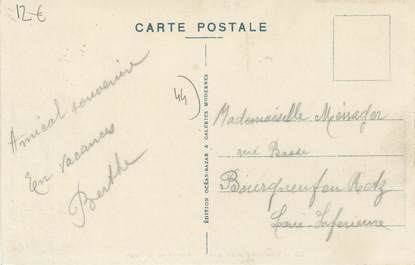 12€
CARTE POSTALE
44
Amical souvenir
En vacances
Berthe
EDITION OCÉAN-BAZAR & GALERIES MODERNES
Mademoiselle Ménager
rue Basse
Bourgneuf en Retz
Loire-Inférieure